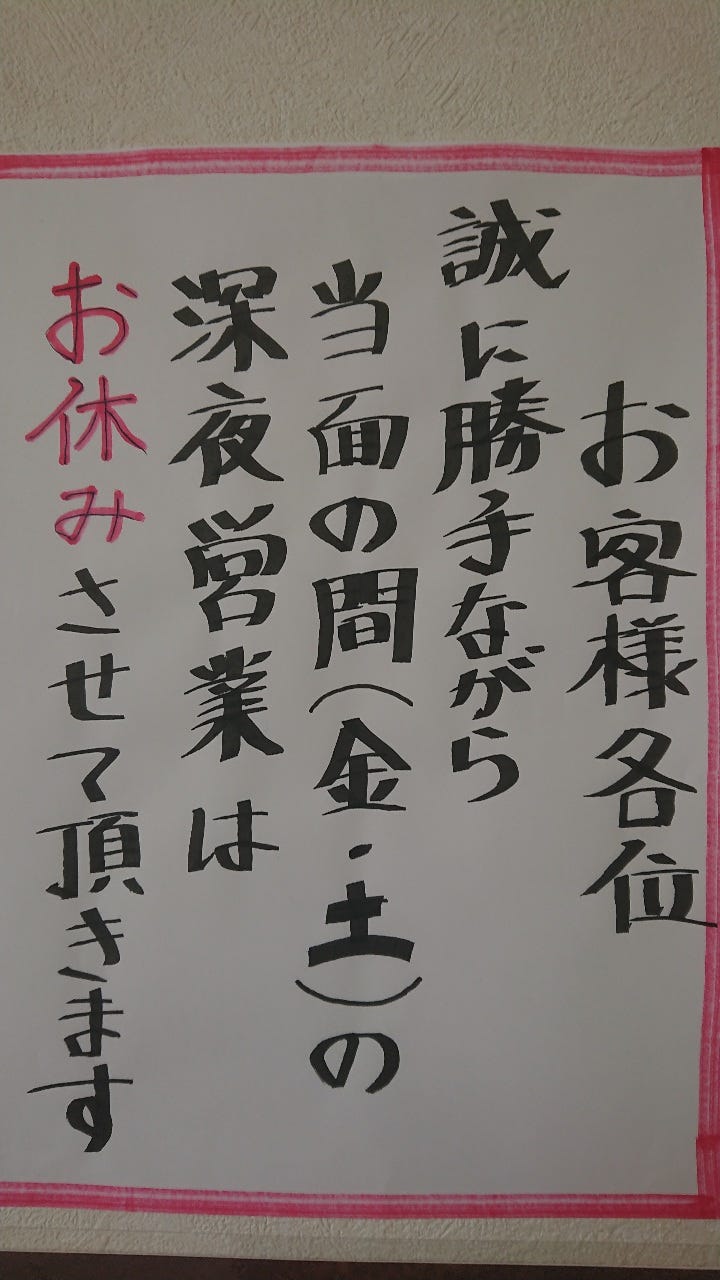 お客様各位
誠に勝手ながら
当面の間(金・土)の
深夜営業は
お休みさせて頂きます